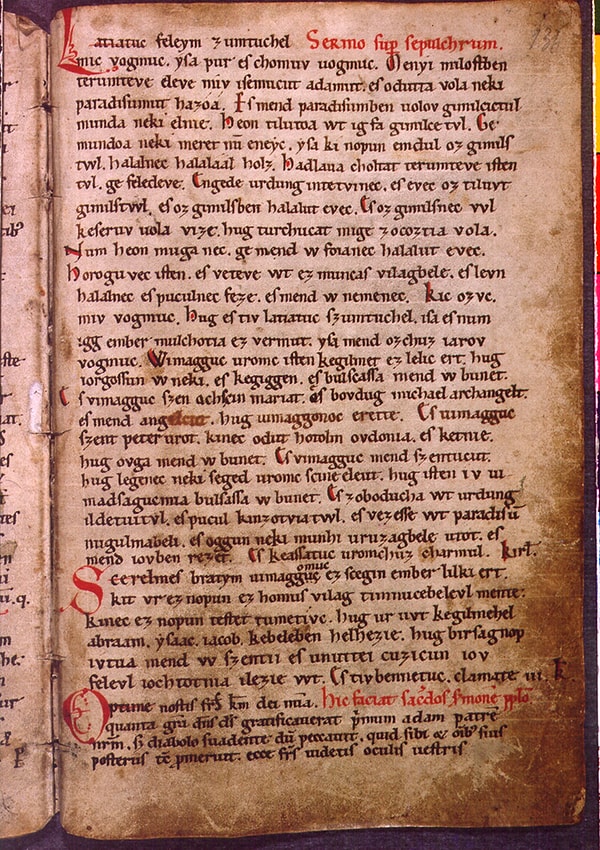 138
Latiatuc feleym zumtuchel Sermo sup sepulchrum.
mic vogmuc. ysa pur es chomuv uogmuc. Menyi milostben
terumteve eleve miv isemucut adamut. es odutta vola neki
paradisumut hazoa. Es mend paradisumben uolov gimilcictul
munda neki elnie. Heon tilutoa wt ig fa gimilce tvl. Ge
mundoa neki meret nu eneyc. ysa ki nopun emdul oz gimils
twl. halalnec halalaal holz. Hadlava choltat terumteve isten
tvl. ge feledeve. Engede urdung intetvinec. es evec oz tiluvt
gimilstwl. es oz gimilsben halalut evec. Es oz gimilsnec vvl
keseruv uola vize. hug turchucat mige zocoztia vola.
Num heon muga nec. ge mend w foianec halalut evec.
Horogu vec isten. es veteve wt ez muncas vilagbele. es levn
halalnec es puculnec feze. es mend w nemenec. Kic ozvc.
miv vogmuc. Hug es tiv latiatuc szumtuchel. isa es num
igg ember mulchotia ez vermut. ysa mend ozchuz iarov
vogmuc. Wimagguc uromc isten kegilmet ez lelic ert. hug
iorgossun w neki. es kegiggen. es bulscassa mend w bunet.
Es vimagguc szen achscin mariat. es bovdug michael archangelt.
es mend angelcut. hug uimaggonoc erette. Es uimagguc
szent peter urot. kinec odut hotolm ovdonia. es ketnie.
hug ovga mend w bunet. Es vimagguc mend szentucut.
hug legenec neki seged uromc scine eleut. hug isten iv ui
madsagucmia bulsassa w bunet. Es zoboducha wt urdung
ildetuitvl. es pucul kinzotviatwl. es vezesse wt paradisū
nugulmabeli. es oggun neki munhi uruzagbele utot. es
mend iovben rezet. Es keassatuc uromchuz charmul. kirl.
Scerelmes bratym uimaggucomuc ez scegin ember lilki ert.
kit vr ez nopun ez homus vilag timnucebelevl mente.
kinec ez nopun testet tumetivc. hug ur uvt kegilmehel
abraam. ysaac. iacob. kebeleben helhezie. hug birsagnop
ivtva mend w szentii es unuttei cuzicun iov
felevl iochtotnia ilezie wt. Es tivbennetuc. clamate iii. k
Optime nostis frs km dei mia. Hic faciat sacdos smone pplo
quanta gra dns ds gratificaverat primum adam patre
nrm. s diabolo suadente du peccavit. quid sibi & oib suis
posteris te pmeruit. ecce frs videtis oculis vestris